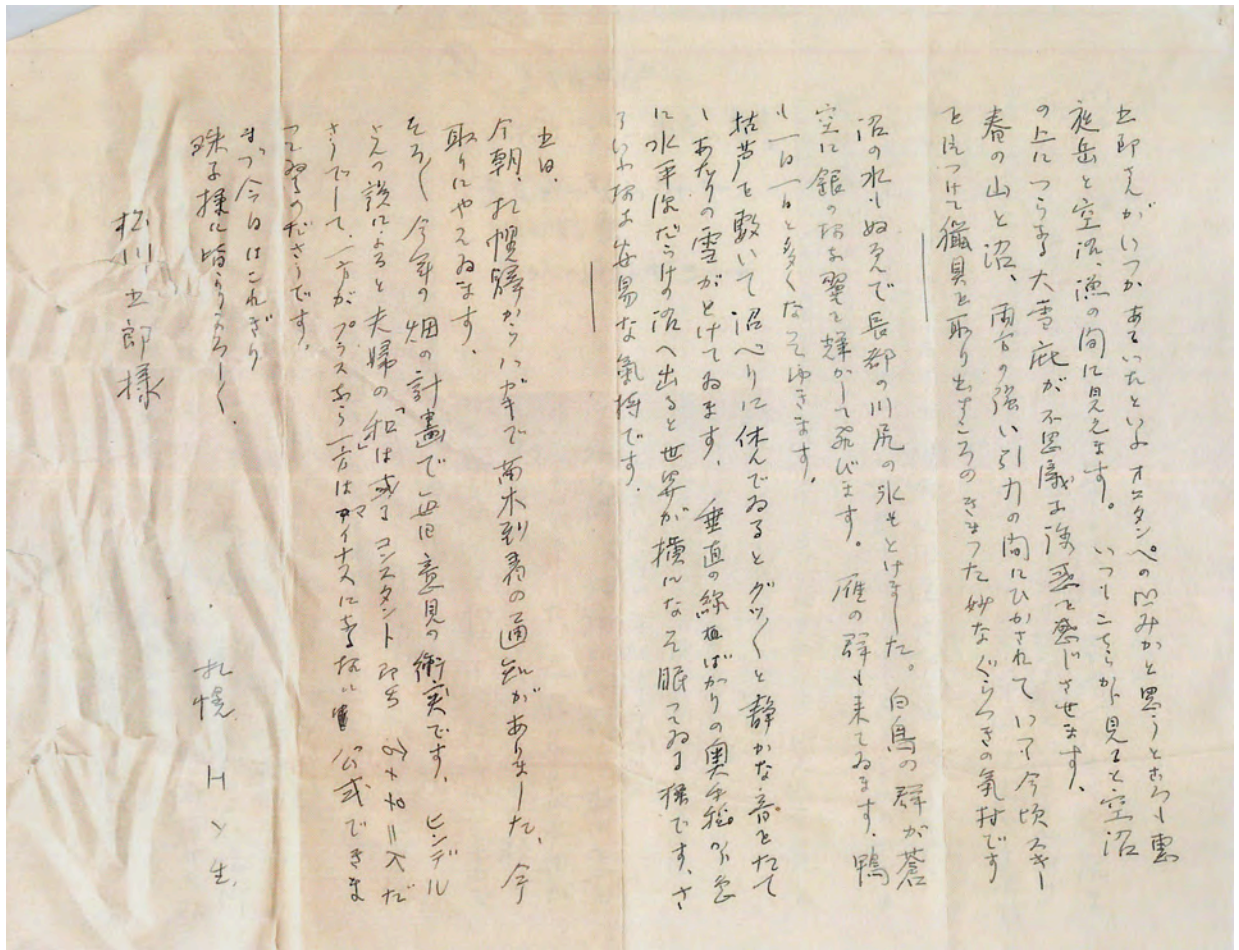 五郎さんがいつかあるいたといふオコタンペの凹みかと思うところも恵
庭岳と空沼、漁の間に見えます。いつもこちらから見ると空沼
の上につらなる大雪庇が不思議な誘惑を感じさせます。
春の山と沼、両方の強い引力の間にひかされていつも今頃スキー
と見つけて猟具を取り出すころのきまつた妙なぐらつきの氣持です
沼の水もぬるんで長都の川尻の氷もとけました。白鳥の群が蒼
空に銀の様な翼を輝かして飛びます。雁の群も来てゐます。鴨
も一日一日と多くなつてゆきます。
枯芦を敷いて沼べりに休んでゐるとグツグツと静かな音をたて
てあたりの雪がとけてゐます。垂直の線ばかりの奥手稲から急
に水平線だらけの沼へ出ると世界が横になつて眠つてゐる様です。さ
ういふ様な安易な氣持です。
五日、
今朝、札幌驛からハガキで苗木到着の通知がありました、今
取りにやつてゐます。
そろそろ今年の畑の計畫で毎日意見の衝突です。ヒンデル
さんの説によると夫婦の「和」は或るコンスタント 即ち だ
さうでして、一方がプラスなら一方はマイナスになる様に公式できま
つてゐるのださうです。
まづ今日はこれぎり
珠子様に皆々よろしく。
札幌 H、Y生、
松川五郎様